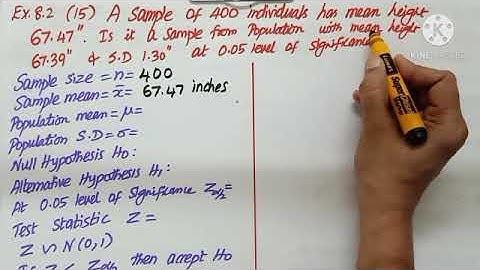 Ex. 8.2 (15) A Sample of 400 individuals has mean height
67.47". Is it a Sample from Population with mean height
67.39" & S.D 1.30" at 0.05 level of Significance
Sample size = n = 400
Sample mean = x̄ = 67.47 inches
Population mean = μ =
Population S.D = σ =
Null Hypothesis H₀:
Alternative Hypothesis H₁:
At 0.05 level of Significance Z_{α/2} =
Test Statistic Z =
Z ∽ N(0,1)
Z < Z_{α/2} then accept H₀
KINEMASTER